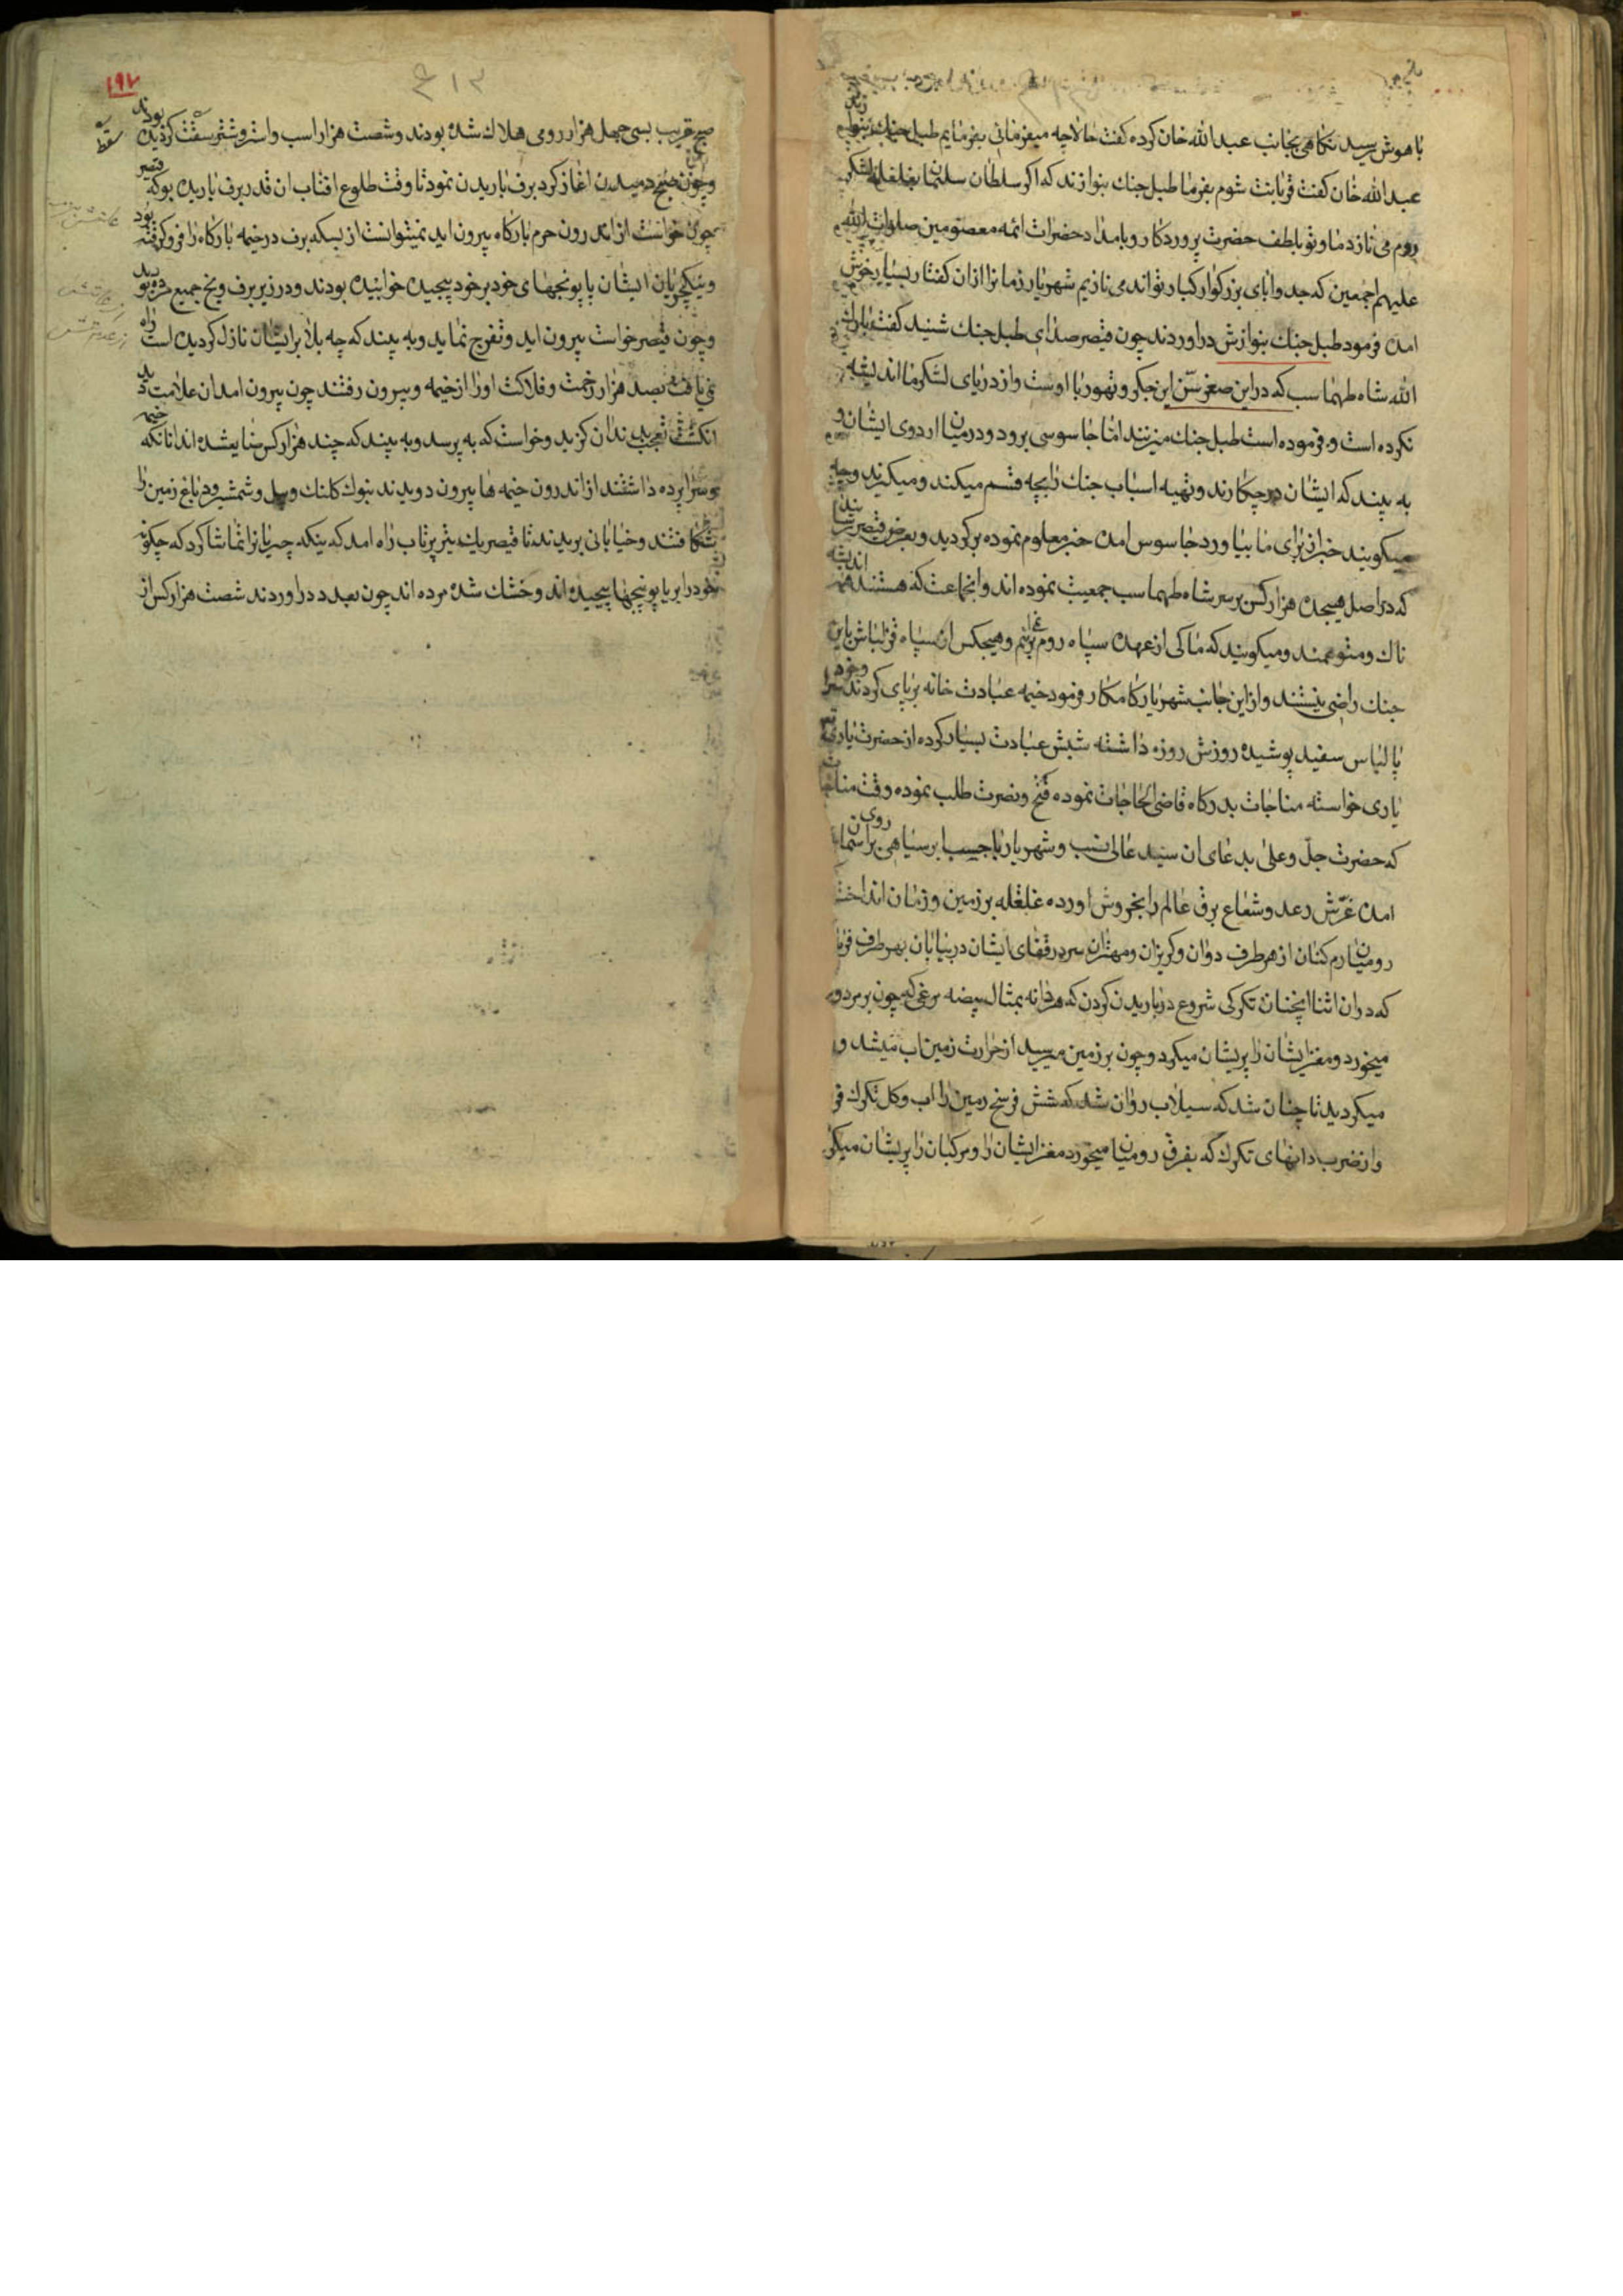 با هوش رسید نکاهی بجانب عبدالله خان کرده کفت حالا چه میفرمائی بفرمایم طبل جنك بنوا زند
عبدالله خان کفت قربانت شوم بفرما طبل جنك بنوازند که اکر سلطان سلیمان بغلغله لشکر
روم می نازد ما و تو بلطف حضرت پروردکار و بامداد حضرات ائمه معصومین صلوات الله
علیهم اجمعین که جد و ابای بزرکوار کبار تواند می نازیم شهریار زمانرا ازان کفتار بسیار خوش
امده فرمود طبل جنك بنوازش دراوردند چون قیصر صدای طبل جنك شنید کفت بارك
الله شاه طهماسب که در این صغر سن این جکر و تهور با اوست و از دریای لشکر ما اندیشه
نکرده است و فرموده است طبل جنك میزنند اما جاسوسی برود و درمیان اردوی ایشان و
به بیند که ایشان درچکارند و تهیه اسباب جنك را بچه قسم میکند و میکیرند و چه
میکویند خبر از برای ما بیاورد جاسوس امده خبر معلوم نموده برکردید و بعرض قیصر رسا نید
که در اصل هیجده هزار کس بر سر شاه طهماسب جمعیت نموده اند و انجماعت که هستند همه اندیشه
ناك و متوهمند و میکویند که ما کی از عهده سپاه روم برائیم و هیچکس از سپاه قزلباش باین
جنك راضی نیستند و از این جانب شهریار کامکار فرمود خیمه عبادت خانه برپای کردند و خود سرا
پا لباس سفید پوشیده روزش روزه داشته شبش عبادت بسیار کرده از حضرت باری
یاری خواسته مناجات بدرکاه قاضی الحاجات نموده فتح و نصرت طلب نموده وقت مناجات
که حضرت جل و علی بدعای ان سید عالی نسب و شهریار با حسب ابر سیاهی بر روی اسمان
امده غرش رعد و شعاع برق عالم را بخروش اورده غلغله بر زمین و زمان انداخت
رومیان رم کنان از هر طرف دوان و کریزان و مهتران سر در قفای ایشان در بیابان بهر طرف
که در ان اثنا انچنان تکرکی شروع در باریدن کردن که هر دانه بمثال بیضه مرغی که چون بر مردم
میخورد و مغز ایشان را پریشان میکرد و چون بر زمین میرسید از حرارت زمین اب میشد و
میکردید تا چنان شد که سیلاب روان شد که شش فرسخ زمین را اب و کل تکرك
و از ضرب دانهای تکرك که بفرق رومیان میخورد مغز ایشان را و مرکبان را پریشان میکرد
۱۹۷
۴۱۳
صبح قریب بسی چهل هزار رومی هلاك شده بودند و شصت هزار اسب و استر و شتر سقت کردیده بودند
سقط
و چون صبح دمیدن اغاز کرد برف باریدن نمود تا وقت طلوع افتاب ان قدر برف باریده بود که قیصر
چون خواست از اندرون حرم بارکاه بیرون اید نمیتوانست از بسکه برف در خیمه بارکاه را فرو کرفته بود
و ینکچریان ایشان پاپونجهای خود بر خود پیچیده خوابیده بودند و در زیر برف و یخ جمیع
و چون قیصر خواست بیرون اید و تفرج نماید و به بیند که چه بلا بر ایشان نازل کردیده است راه
نمی یافت بصد هزار زحمت و فلاکت او را از خیمه و بیرون رفتند چون بیرون امد ان علامت دید
انکشت تعجب بدندان کزید و خواست که به پرسد و به بیند که چند هزار کس ضایع شده اند انانکه خیمه
و سراپرده داشتند از اندرون خیمه ها بیرون دویدند بنوك کلنك و بیل و شمشیر زمین را
شکافتند و خیابانی بریدند تا قیصر یك تیر پرتاب راه امد که ینکه چریانرا تماشا کرد که چکونه
خود را بر پاپونجها پیچیده اند و خشك شده مرده اند چون بعدد دراوردند شصت هزار کس از